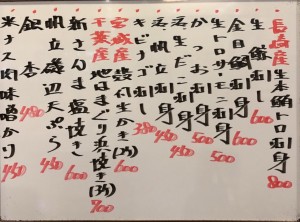 長崎産 生本鮪トロ刺身 800
生鯵刺し 600
金目鯛刺身 600
生トロサーモン刺身 500
かつお刺身 500
活生だこ刺身 450
活帆立刺身 450
キビナゴ刺し 380
宮城産 殻付生かき(3ヶ) 600
千葉産 地はまぐり浜焼き(3ヶ) 700
新さんま塩焼き 600
帆立磯辺天ぷら 450
銀杏 480
米ナス肉味噌かけ 450